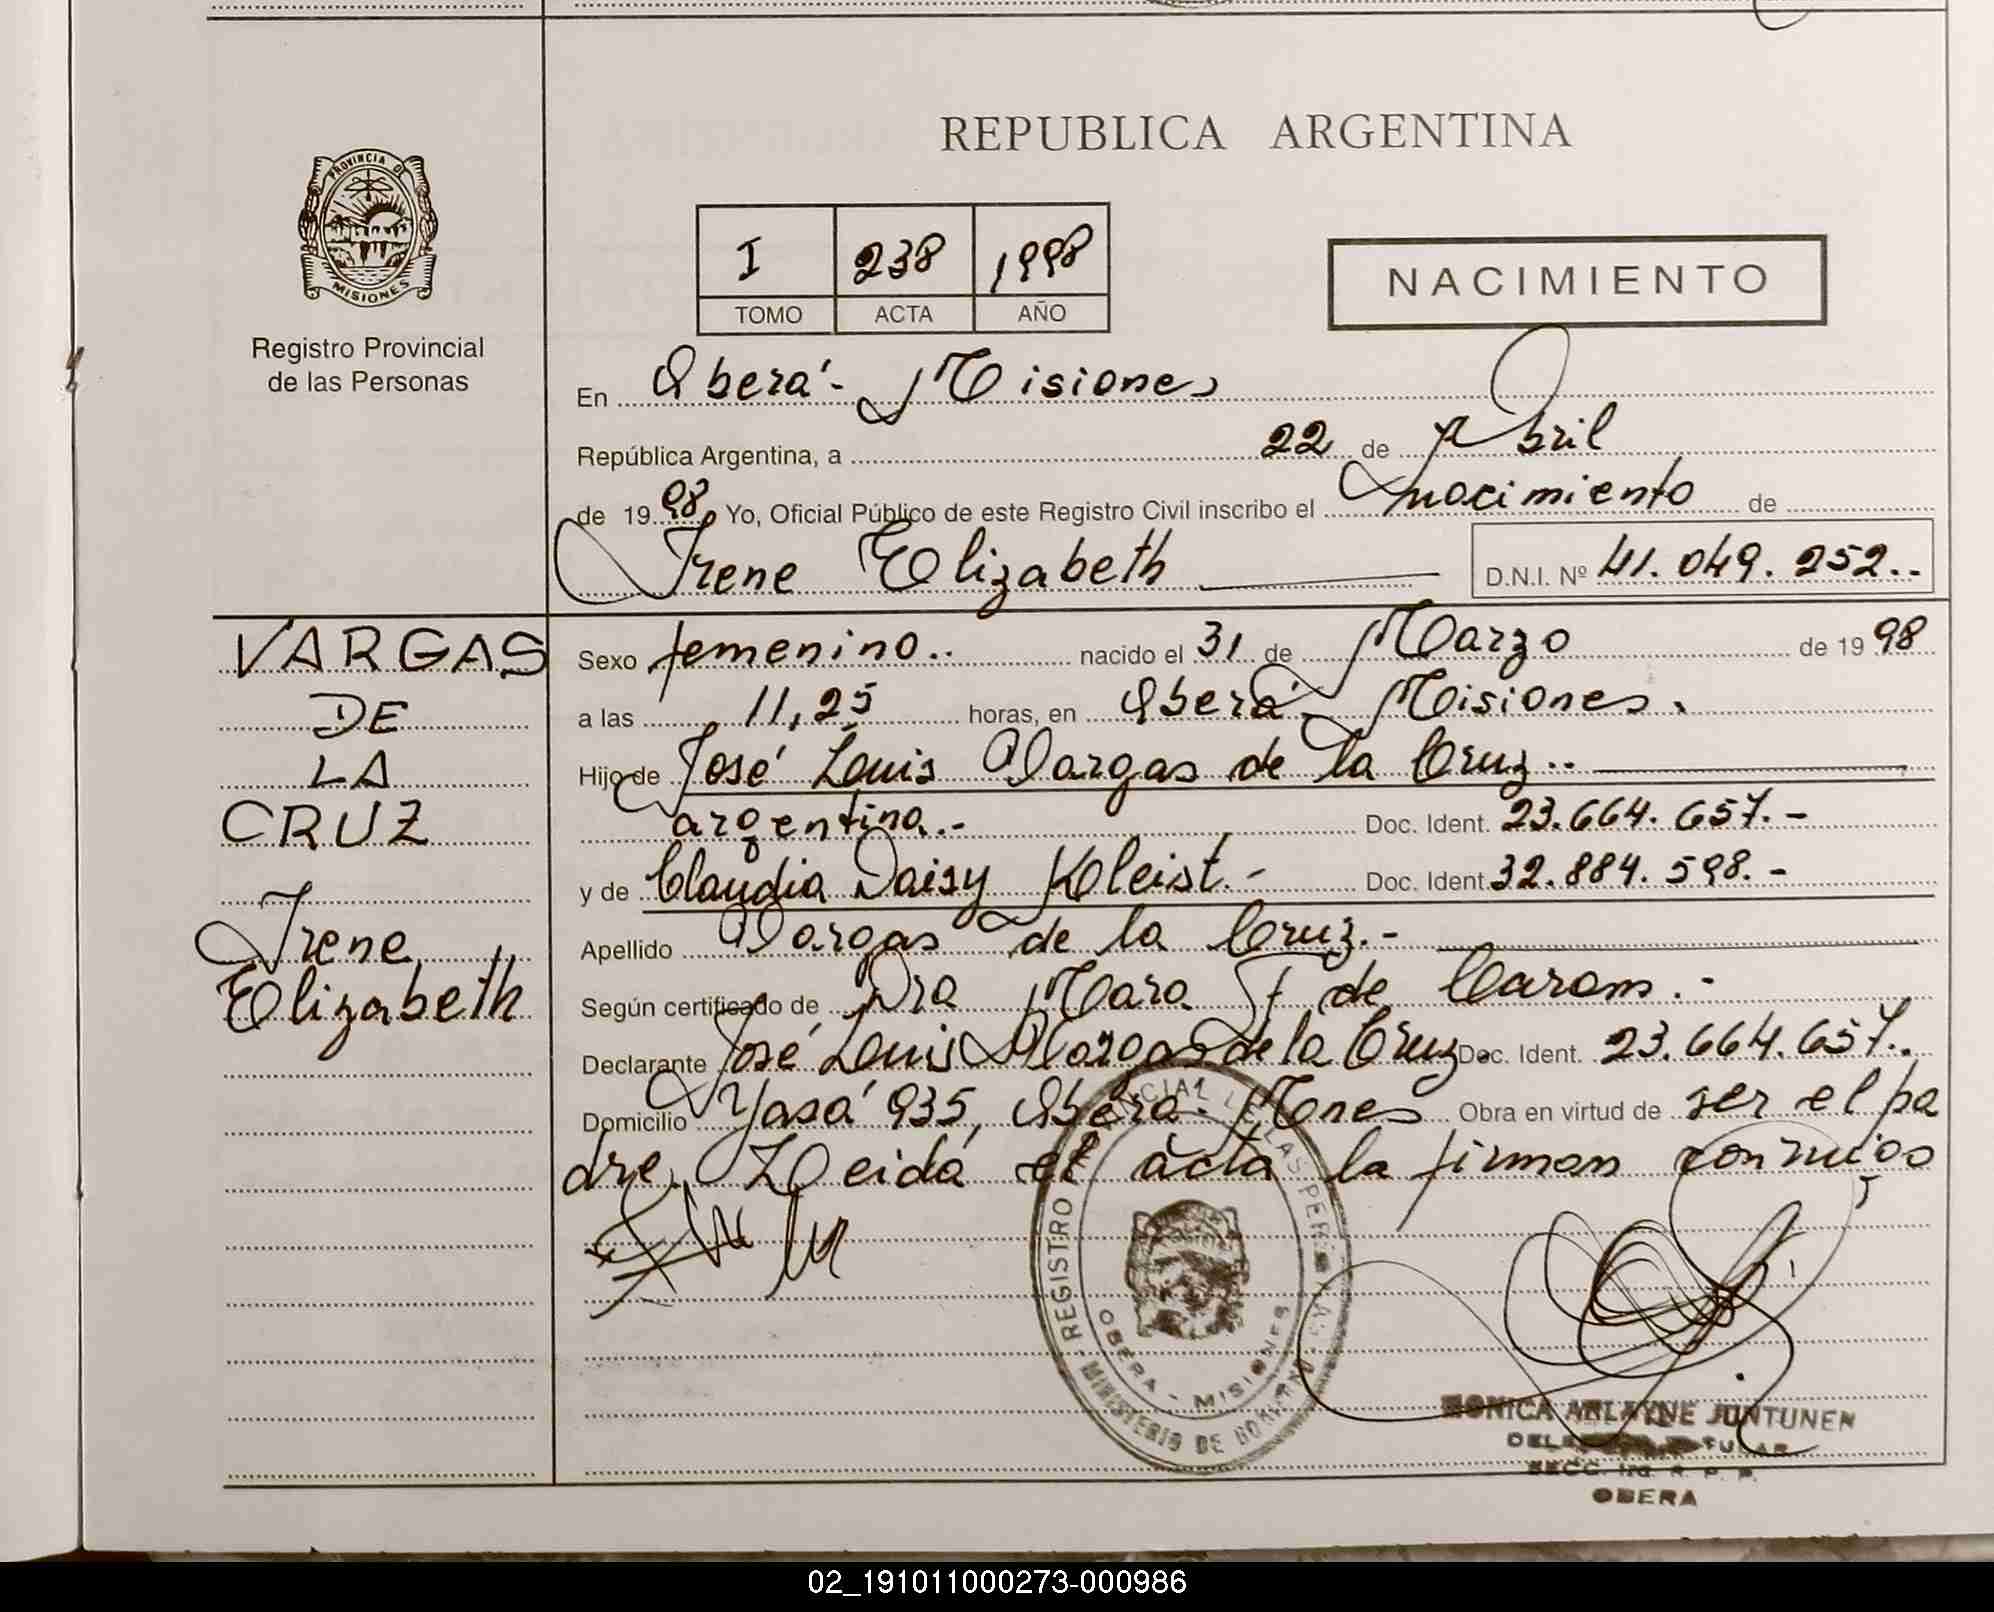 REPUBLICA ARGENTINA
PROVINCIA DE
MISIONES
Registro Provincial
de las Personas
I 238 1998
TOMO ACTA AÑO
NACIMIENTO
En Oberá - Misiones
República Argentina, a 22 de Abril
de 19 98 Yo, Oficial Público de este Registro Civil inscribo el nacimiento de
Irene Elizabeth D.N.I. Nº 41.049.252..
VARGAS
DE
LA
CRUZ
Irene
Elizabeth
Sexo femenino.. nacido el 31 de Marzo de 19 98
a las 11,25 horas, en Oberá - Misiones.
Hijo de José Luis Vargas de la Cruz..
argentina.- Doc. Ident. 23.664.657.-
y de Claudia Daisy Kleist.- Doc. Ident. 32.884.598.-
Apellido Vargas de la Cruz.-
Según certificado de Dra Mara F de .-
Declarante José Luis Vargas de la Cruz Doc. Ident. 23.664.657..
Domicilio Yasá 935, Oberá - Mones Obra en virtud de ser el pa
dre. Leida el acta la firman conmigo
REGISTRO PROVINCIAL DE LAS PERSONAS
OBERA - MISIONES
MINISTERIO DE GOBIERNO
MONICA ARLAYNE JUNTUNEN
SECC. 1ra R. P. P.
OBERA
02_191011000273-000986